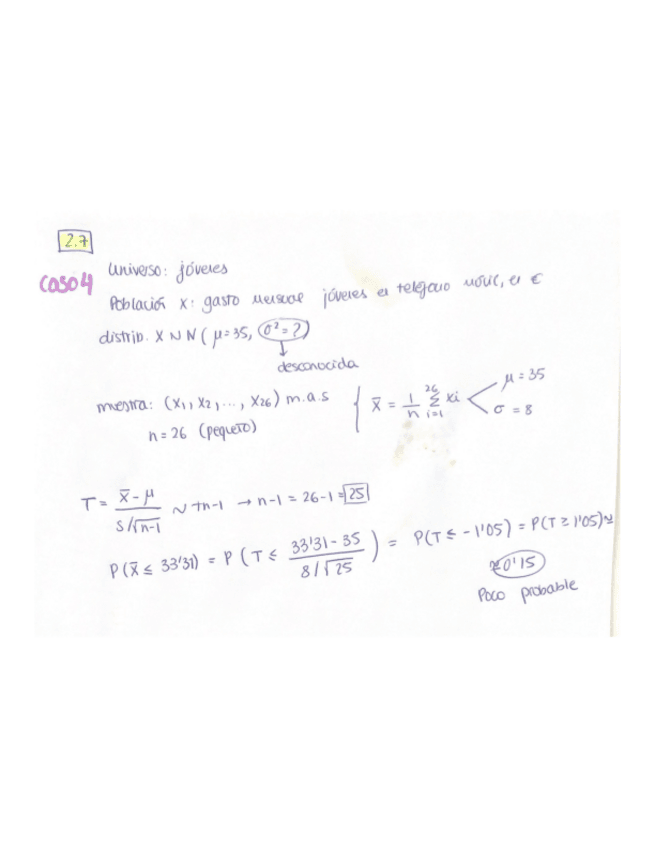 2.7
Caso 4
Universo: jóvenes
Población X: gasto mensual jóvenes en teléfono móvil, en €
distrib. X ~ N ( μ=35, σ² = ?)
desconocida
muestra: (X₁, X₂, ..., X₂₆) m.a.s
n = 26 (pequeño)
{ X̄ = 1/n Σ_{i=1}^{26} xi < μ = 35
σ = 8
T = (X̄ - μ) / (S/√n-1) ~ tn-1 → n-1 = 26-1 = 25
P(X̄ ≤ 33'31) = P ( T ≤ (33'31 - 35) / (8/√25) ) = P(T ≤ -1'05) = P(T ≥ 1'05) ≈
≈ 0'15
Poco probable